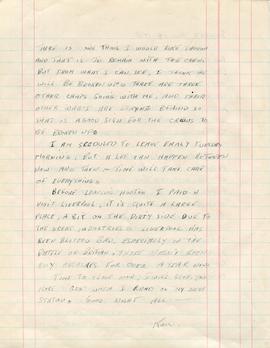 THERE IS ONE THING I WOULD LIKE
AND THAT IS TO REMAIN WITH THE CREW,
BUT FROM WHAT I CAN SEE, I THINK WE
WILL BE BROKEN UP. THERE ARE THREE
OTHER CHAPS GOING WITH ME, AND THEIR
OTHER STAYING BEHIND SO
THAT IS A GOOD SIGN FOR THE CREWS TO
BE BROKEN UP.
I AM SCHEDULED TO LEAVE EARLY TUESDAY
MORNING, BUT A LOT CAN HAPPEN BETWEEN
NOW AND THEN — TIME WILL TAKE CARE
OF EVERYTHING.
BEFORE LEAVING I PAID A
VISIT LIVERPOOL, IT IS QUITE A LARGE
PLACE, A BIT ON THE DIRTY SIDE DUE TO
THE INDUSTRIES. LIVERPOOL HAS
BEEN BLITZED BAD, ESPECIALLY IN THE
BATTLE OF BRITAIN, THERE HASN'T BEEN
ANY FOR OVER A YEAR NOW.
TIME TO CLOSE NOW, I WILL
WHEN I REACH MY NEW
STATION. GOOD NIGHT ALL —